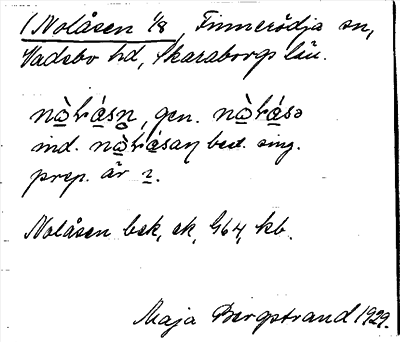 1 Nolåsen 1/8, Finnerödja sn,
Vadsbo hd, Skaraborgs län.
nò̱ɬå̱sn̥, gen. nò̱ɬå̱sə
ind. nò̱ɬå̱san best. sing.
prep. är
Nolåsen bek, ek, G64, kb.
Maja Bergstrand 1929.